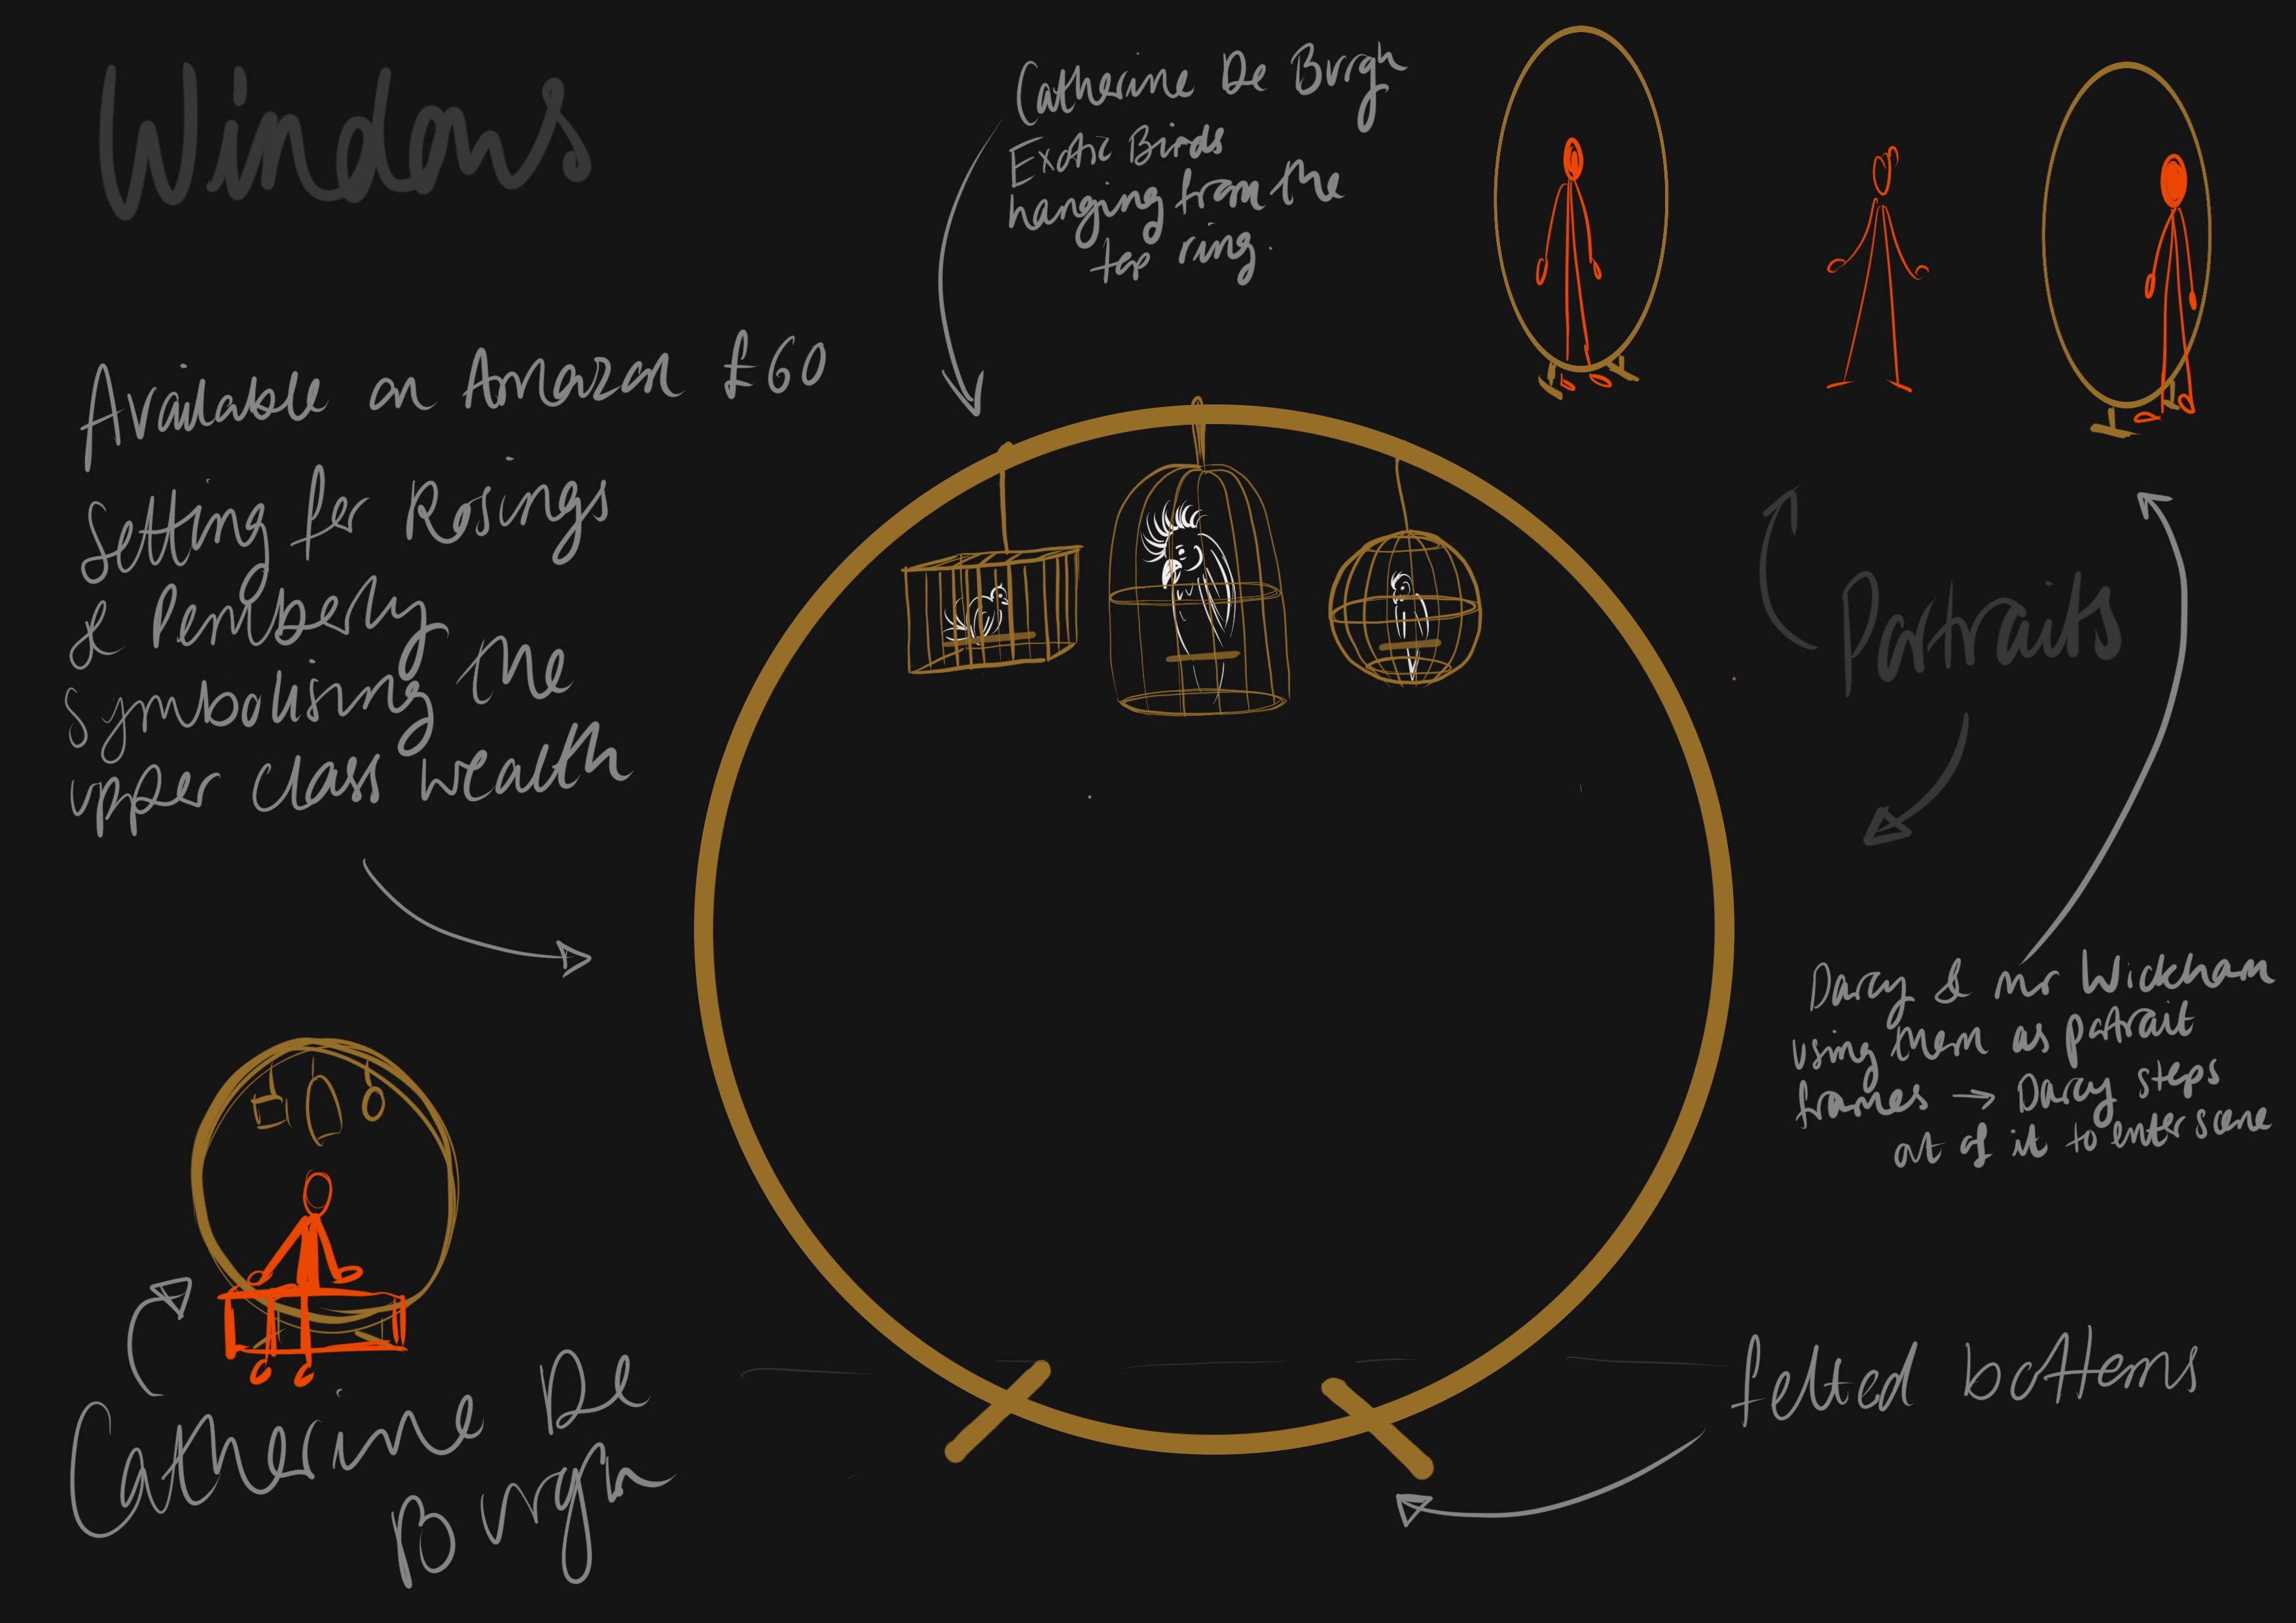 Windows
Catherine De Burgh
Exotic Birds
hanging from the
top ring.
Available on Amazon £60
Setting for Rosings
& Pemberly
symbolising the
upper class wealth
Portraits
Darcy & mr Wickham
using them as portrait
frames → Darcy steps
out of it to enter scene
Catherine De
Burgh
felted bottoms